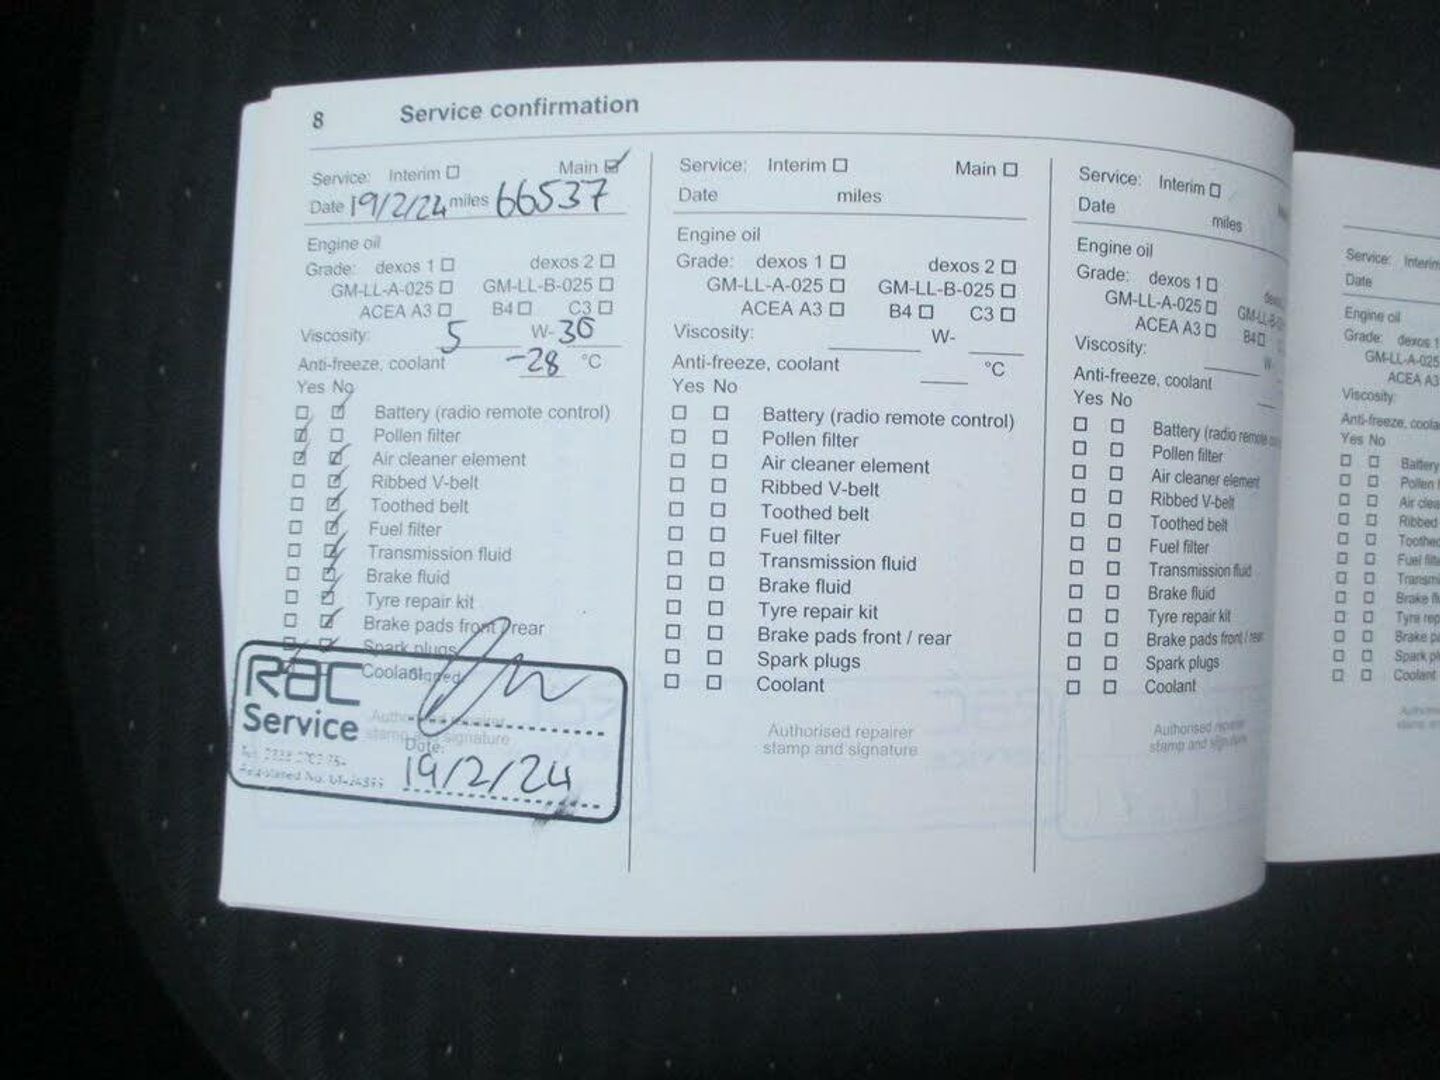 8 Service confirmation
Service: Interim ☐ Main ☑
Date 19/2/24 miles 66537
Engine oil
Grade: dexos 1 ☐ dexos 2 ☐
GM-LL-A-025 ☐ GM-LL-B-025 ☐
ACEA A3 ☐ B4 ☐ C3 ☐
Viscosity: 5 W- 30
Anti-freeze, coolant -28 °C
Yes No
☐ ☑ Battery (radio remote control)
☑ ☐ Pollen filter
☑ ☑ Air cleaner element
☐ ☑ Ribbed V-belt
☐ ☑ Toothed belt
☐ ☑ Fuel filter
☐ ☑ Transmission fluid
☐ ☑ Brake fluid
☐ ☑ Tyre repair kit
☐ ☑ Brake pads front / rear
Spark plugs
Coolant
Authorised repairer
stamp and signature
RAC
Service
Signed
Date:
19/2/24
Service: Interim ☐ Main ☐
Date miles
Engine oil
Grade: dexos 1 ☐ dexos 2 ☐
GM-LL-A-025 ☐ GM-LL-B-025 ☐
ACEA A3 ☐ B4 ☐ C3 ☐
Viscosity: W-
Anti-freeze, coolant °C
Yes No
☐ ☐ Battery (radio remote control)
☐ ☐ Pollen filter
☐ ☐ Air cleaner element
☐ ☐ Ribbed V-belt
☐ ☐ Toothed belt
☐ ☐ Fuel filter
☐ ☐ Transmission fluid
☐ ☐ Brake fluid
☐ ☐ Tyre repair kit
☐ ☐ Brake pads front / rear
☐ ☐ Spark plugs
☐ ☐ Coolant
Authorised repairer
stamp and signature
Service: Interim ☐
Date miles
Engine oil
Grade: dexos 1 ☐
GM-LL-A-025 ☐
ACEA A3 ☐ B4 ☐
Viscosity: W-
Anti-freeze, coolant
Yes No
☐ ☐ Battery (radio remote
☐ ☐ Pollen filter
☐ ☐ Air cleaner element
☐ ☐ Ribbed V-belt
☐ ☐ Toothed belt
☐ ☐ Fuel filter
☐ ☐ Transmission fluid
☐ ☐ Brake fluid
☐ ☐ Tyre repair kit
☐ ☐ Brake pads front / rear
☐ ☐ Spark plugs
☐ ☐ Coolant
Authorised repairer
stamp and signature
Service: Interim
Date
Engine oil
Grade: dexos 1
GM-LL-A-025
ACEA A3
Viscosity:
Anti-freeze,
Yes No
☐ ☐ Battery
☐ ☐ Pollen
☐ ☐ Air
☐ ☐ Ribbed
☐ ☐ Toothed
☐ ☐ Fuel
☐ ☐
☐ ☐ Brake
☐ ☐ Tyre
☐ ☐ Brake
☐ ☐ Spark
☐ ☐ Coolant